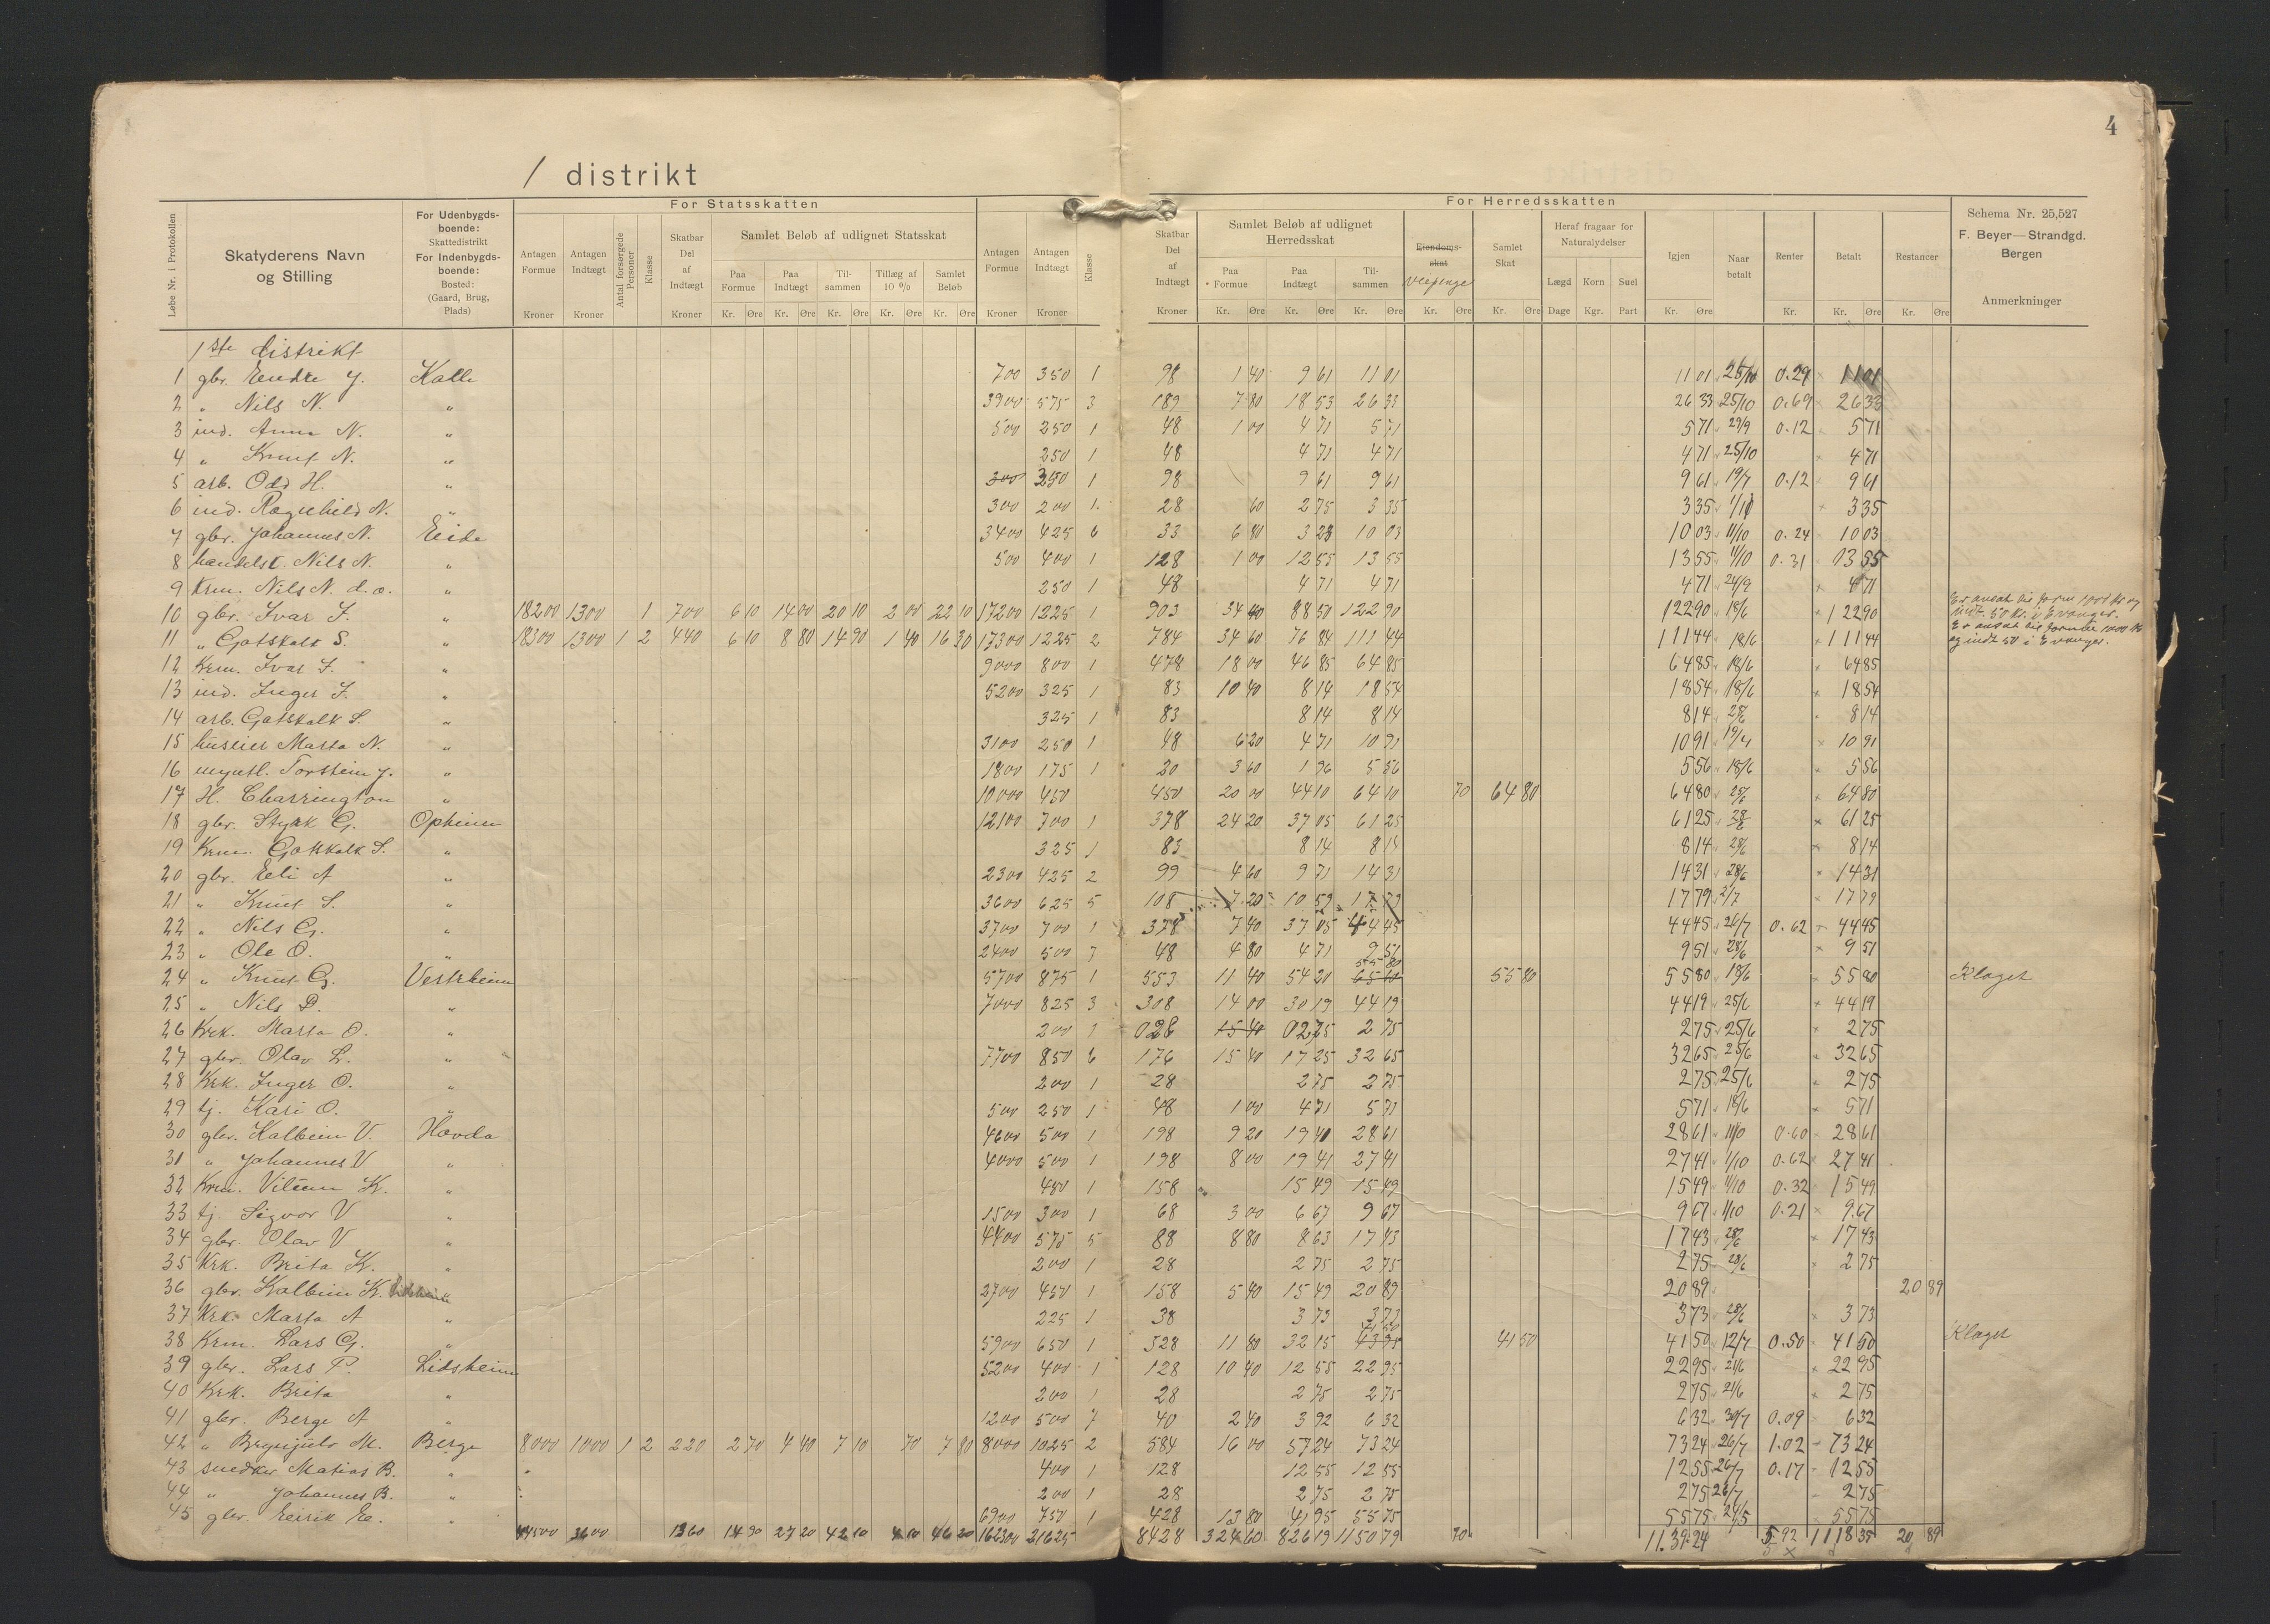 4
/ distrikt
For Statsskatten
For Herredsskatten
Løbe Nr. i Protokollen
Skatyderens Navn og Stilling
For Udenbygdsboende: Skattedistrikt For Indenbygdsboende: Bosted: (Gaard, Brug, Plads)
Antagen Formue Kroner
Antagen Indtægt Kroner
Antal forsørgede Personer
Klasse
Skatbar Del af Indtægt Kroner
Samlet Beløb af udlignet Statsskat
Paa Formue Kr. Øre
Paa Indtægt Kr. Øre
Tilsammen Kr. Øre
Tillæg af 10 % Kr. Øre
Samlet Beløb Kr. Øre
Antagen Formue Kroner
Antagen Indtægt Kroner
Klasse
Skatbar Del af Indtægt Kroner
Samlet Beløb af udlignet Herredsskat
Paa Formue Kr. Øre
Paa Indtægt Kr. Øre
Tilsammen Kr. Øre
Eiendomsskat Veepenge Kr. Øre
Samlet Skat Kr. Øre
Heraf fragaar for Naturalydelser
Lægd Dage
Korn Kgr.
Suel Part
Igjen Kr. Øre
Naar betalt
Renter Kr.
Betalt Kr. Øre
Restancer Kr. Øre
Schema Nr. 25,527
F. Beyer—Strandgd.
Bergen
Anmerkninger
1ste distrikt
1 gbr. Endre J. Kalle 700 350 1 98 1 40 9 61 11 01 11 01 25/10 0.29 11 01
2 " Nils N. " 3900 575 3 189 7 80 18 53 26 33 26 33 25/10 0.69 26 33
3 ind. Anna N. " 500 250 1 48 1 00 4 71 5 71 5 71 29/9 0.12 5 71
4 " Knut N. " 250 1 48 4 71 4 71 4 71 25/10 4 71
5 arb. Odd H. " 300 350 1 98 9 61 9 61 9 61 19/7 0.12 9 61
6 ind. Ragnhild N. " 300 200 1 28 60 2 75 3 35 3 35 3 35
7 gbr. Johannes N. Eide 3400 425 6 33 6 80 3 23 10 03 10 03 11/10 0.24 10 03
8 handelsk. Nils N. " 500 400 1 128 1 00 12 55 13 55 13 55 11/10 0.31 13 55
9 Krm. Nils N. d.o. " 250 1 48 4 71 4 71 4 71 24/9 4 71
10 gbr. Ivar I. " 18200 1300 1 700 6 10 14 00 20 10 2 00 22 10 17200 1225 1 903 34 40 88 50 122 90 122 90 18/6 122 90
11 " Gotskalk S. " 18300 1300 1 2 440 6 10 8 80 14 90 1 40 16 30 17300 1225 2 784 34 60 76 84 111 44 111 44 18/6 111 44
12 Krm. Ivar I. " 9000 800 1 478 18 00 46 85 64 85 64 85 18/6 64 85
13 ind. Inger I. " 5200 325 1 83 10 40 8 14 18 54 18 54 18/6 18 54
14 arb. Gotskalk S. " 325 1 83 8 14 8 14 8 14 28/6 8 14
15 huseier Marta N. " 3100 250 1 48 6 20 4 71 10 91 10 91 10 91
16 Torstein J. " 1800 175 1 20 3 60 1 96 5 56 5 56 18/6 5 56
17 H. Charrington " 10000 450 450 20 00 44 10 64 10 70 64 80 64 80 64 80
18 gbr. Styrk G. Opheim 12100 700 1 378 24 20 37 05 61 25 61 25 28/6 61 25
19 Krm. Gotskalk S. " 325 1 83 8 14 8 14 8 14 28/6 8 14
20 gbr. Eli A " 2300 425 2 99 4 60 9 71 14 31 14 31 28/6 14 31
21 " Knut S. " 3600 625 5 108 7 20 10 59 17 79 17 79 2/7 17 79
22 " Nils G. " 3700 700 1 378 7 40 37 05 44 45 44 45 26/7 0.62 44 45
23 " Ole O. " 2400 500 7 48 4 80 4 71 9 51 9 51 28/6 9 51
24 " Knut G. Vestrheim 5700 875 1 553 11 40 54 20 65 60 55 80 55 80 55 80 18/6 55 80 Klaget
25 " Nils D. " 7000 825 3 308 14 00 30 19 44 19 44 19 25/6 44 19
26 Krk. Marta O. " 200 1 028 15 40 02,75 2 75 2 75 25/6 2 75
27 gbr. Olav L. " 7700 850 6 176 15 40 17 25 32 65 32 65 25/6 32 65
28 Krk. Inger O. " 200 1 28 2 75 2 75 2 75 25/6 2 75
29 tj. Kari O. " 500 250 1 48 1 00 4 71 5 71 5 71 18/6 5 71
30 gbr. Kolbein V. Hovda 4600 500 1 198 9 20 19 41 28 61 28 61 11/10 0.60 28 61
31 " Johannes V " 4000 500 1 198 8 00 19 41 27 41 27 41 1/10 0.62 27 41
32 Krm. Vilum K. " 400 1 158 15 49 15 49 15 49 11/10 0.32 15 49
33 tj. Sigvor V " 1500 300 1 68 3 00 6 67 9 67 9 67 1/10 0.21 9.67
34 gbr. Olav V " 4400 575 5 88 8 80 8 63 17 43 17 43 28/6 17 43
35 Krk. Brita K. " 200 1 28 2 75 2 75 2 75 28/6 2 75
36 gbr. Kolbein K. 2700 450 1 158 5 40 15 49 20 89 20 89 20 89
37 Krk. Marta A " 225 1 38 3 73 3 73 3 73 28/6 3 73
38 Krm. Lars G. " 5900 650 1 328 11 80 32 15 43 95 41 50 41 50 41 50 12/7 0.50 41 50 Klaget
39 gbr. Lars P. Lidsheim 5200 400 1 128 10 40 12 55 22 95 22 95 21/6 22 95
40 Krk. Brita " 200 1 28 2 75 2 75 2 75 21/6 2 75
41 gbr. Berge A " 1200 500 7 40 2 40 3 92 6 32 6 32 30/7 0.09 6 32
42 " Brynjulv M. Berge 8000 1000 1 2 220 2 70 4 40 7 10 70 7 80 8000 1025 2 584 16 00 57 24 73 24 73 24 26/7 1.02 73 24
43 snedker Matias B. " 400 1 128 12 55 12 55 12 55 26/7 0.17 12 55
44 " Johannes B. " 200 1 28 2 75 2 75 2 75 26/7 2 75
45 gbr. Eirik E. " 6900 750 1 428 13 80 41 95 55 75 55 75 55 75
44500 3600 1360 14 90 27 20 42 10 4 10 46 20 162300 21625 8428 324 60 826 19 1150 79 70 11.39.24 5 92 1118 35 20 89